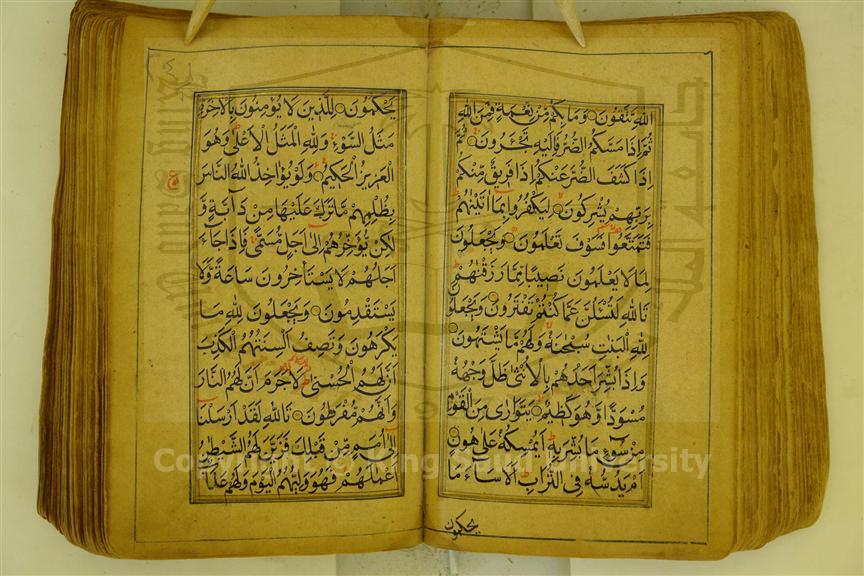 الله تتقون وما بكم من نعمة فمن الله
ثم اذا مسكم الضر فاليه تجئرون ثم
اذا كشف الضر عنكم اذا فريق منكم
بربهم يشركون ليكفروا بما اتينهم
فتمتعوا فسوف تعلمون ويجعلون
لما لا يعلمون نصيبا مما رزقنهم
تالله لتسئلن عما كنتم تفترون ويجعلون
لله البنت سبحنه ولهم ما يشتهون
واذا بشر احدهم بالانثى ظل وجهه
مسودا وهو كظيم يتوارى من القوم
من سوء ما بشر به ايمسكه على هون
ام يدسه فى التراب الا ساء ما
يحكمون
يحكمون للذين لا يؤمنون بالاخرة
مثل السوء ولله المثل الاعلى وهو
العزيز الحكيم ولو يؤاخذ الله الناس
بظلمهم ما ترك عليها من دابة و
لكن يؤخرهم الى اجل مسمى فاذا جاء
اجلهم لا يستأخرون ساعة ولا
يستقدمون ويجعلون لله ما
يكرهون وتصف السنتهم الكذب
ان لهم الحسنى لا جرم ان لهم النار
وانهم مفرطون تالله لقد ارسلنا
الى امم من قبلك فزين لهم الشيطن
اعملهم فهو وليهم اليوم ولهم عذاب
Copyright © King Saud University